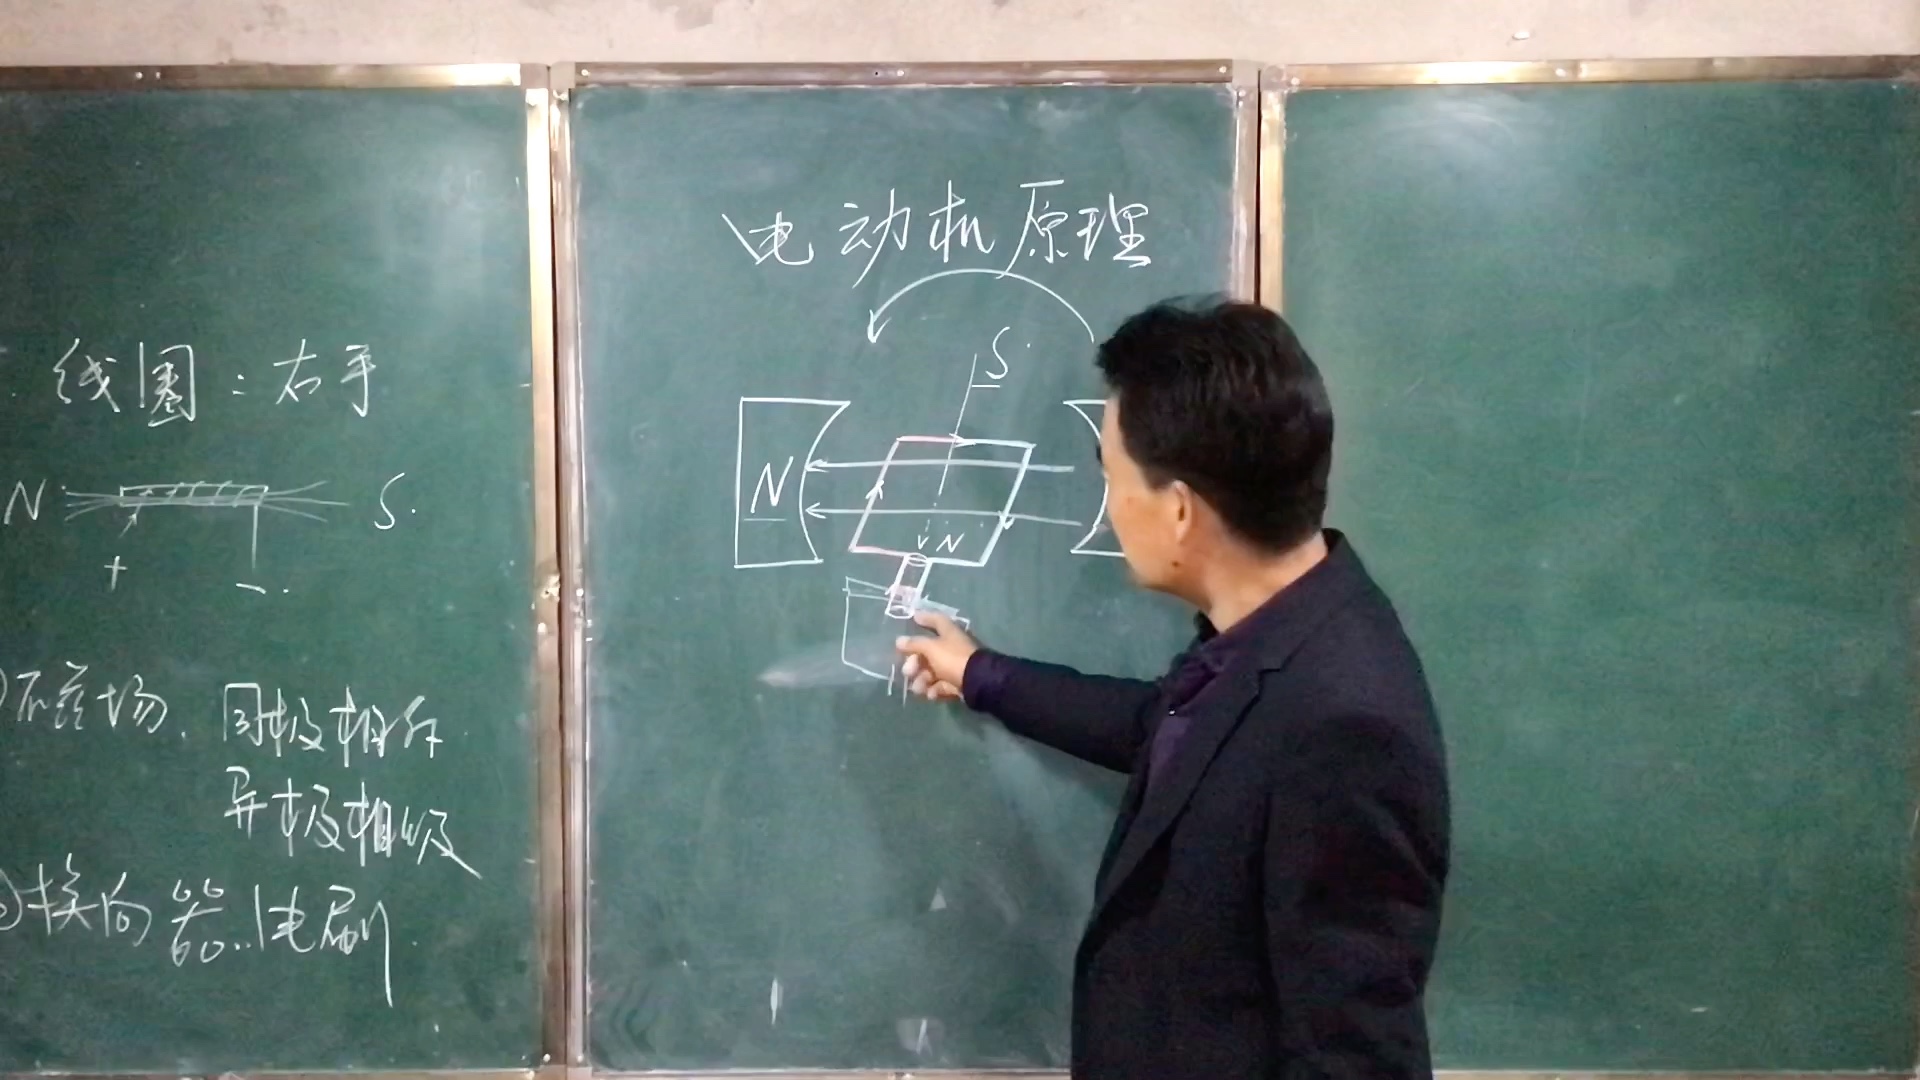 线圈:右手
N S.
+ -.
磁场.同极相斥
异极相吸
换向器..电刷.
电动机原理
S.
N
N